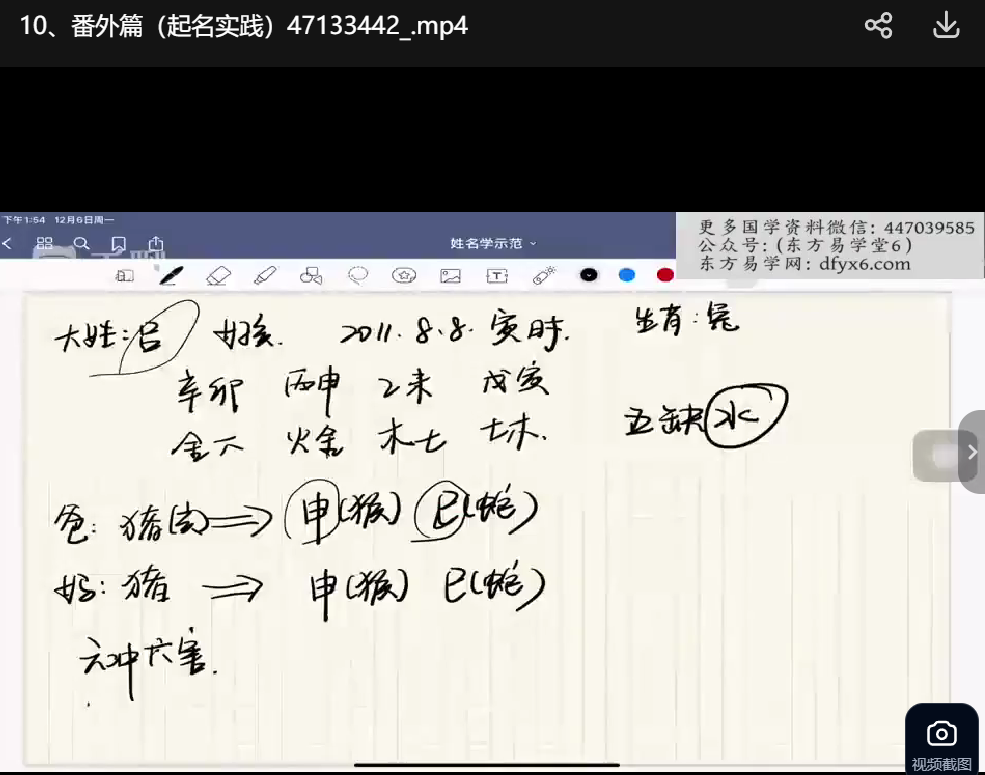 10、番外篇（起名实践）47133442_.mp4
下午1:54 12月6日周一
姓名学示范
更多国学资料微信：447039585
公众号：(东方易学堂6)
东方易学网：dfyx6.com
大姓：吕 女孩. 2011.8.8.寅时. 生肖：兔
辛卯 丙申 乙未 戊寅
五缺水
金木 火金 木土 土木.
爸：猪(亥)⇒ 申(猴) 巳(蛇)
妈：猪 ⇒ 申(猴) 巳(蛇)
六冲六害.
视频截图